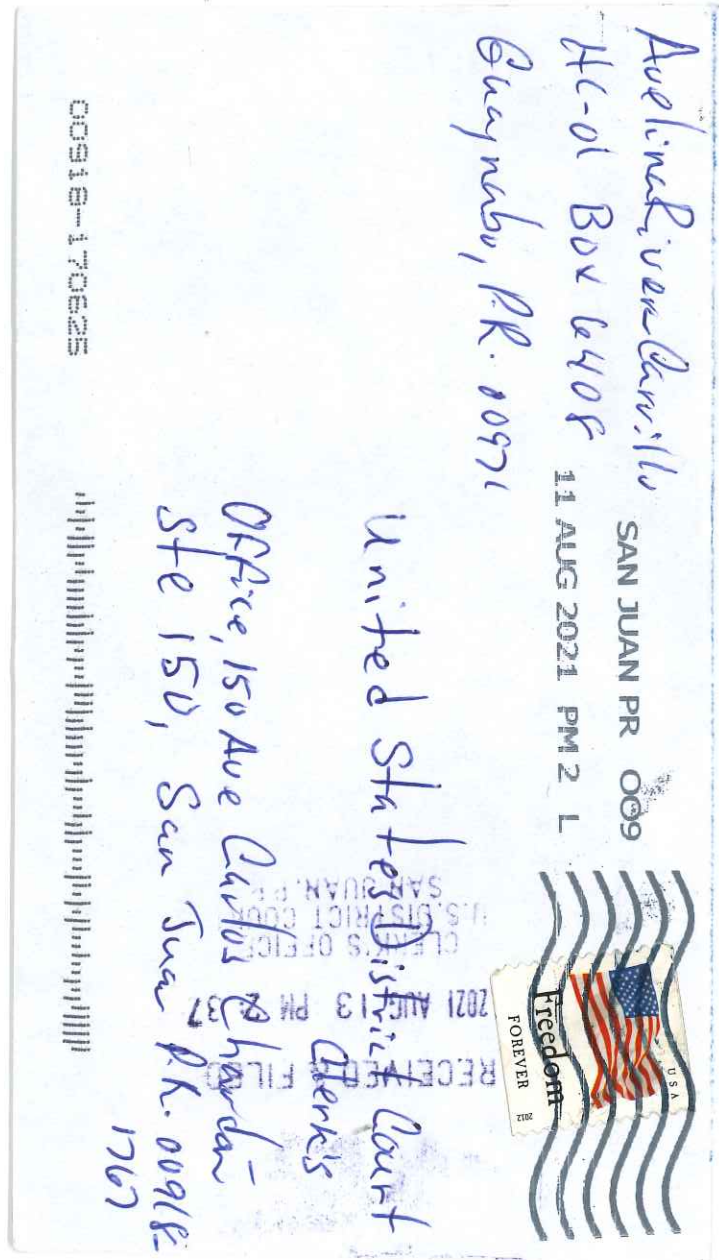 Avelina Rivera Carrillo
HC-01 Box 6408
Guaynabo, P.R. 00971
SAN JUAN PR 009
11 AUG 2021 PM 2 L
USA
Freedom
FOREVER
2012
United States District Court
Clerk's
Office, 150 Ave Carlos Chardón
Ste 150, San Juan P.R. 00918-
1767
RECEIVED & FILED
2021 AUG 13 PM 2:37
CLERK'S OFFICE
U.S. DISTRICT COURT
SAN JUAN, PR
00918-170625